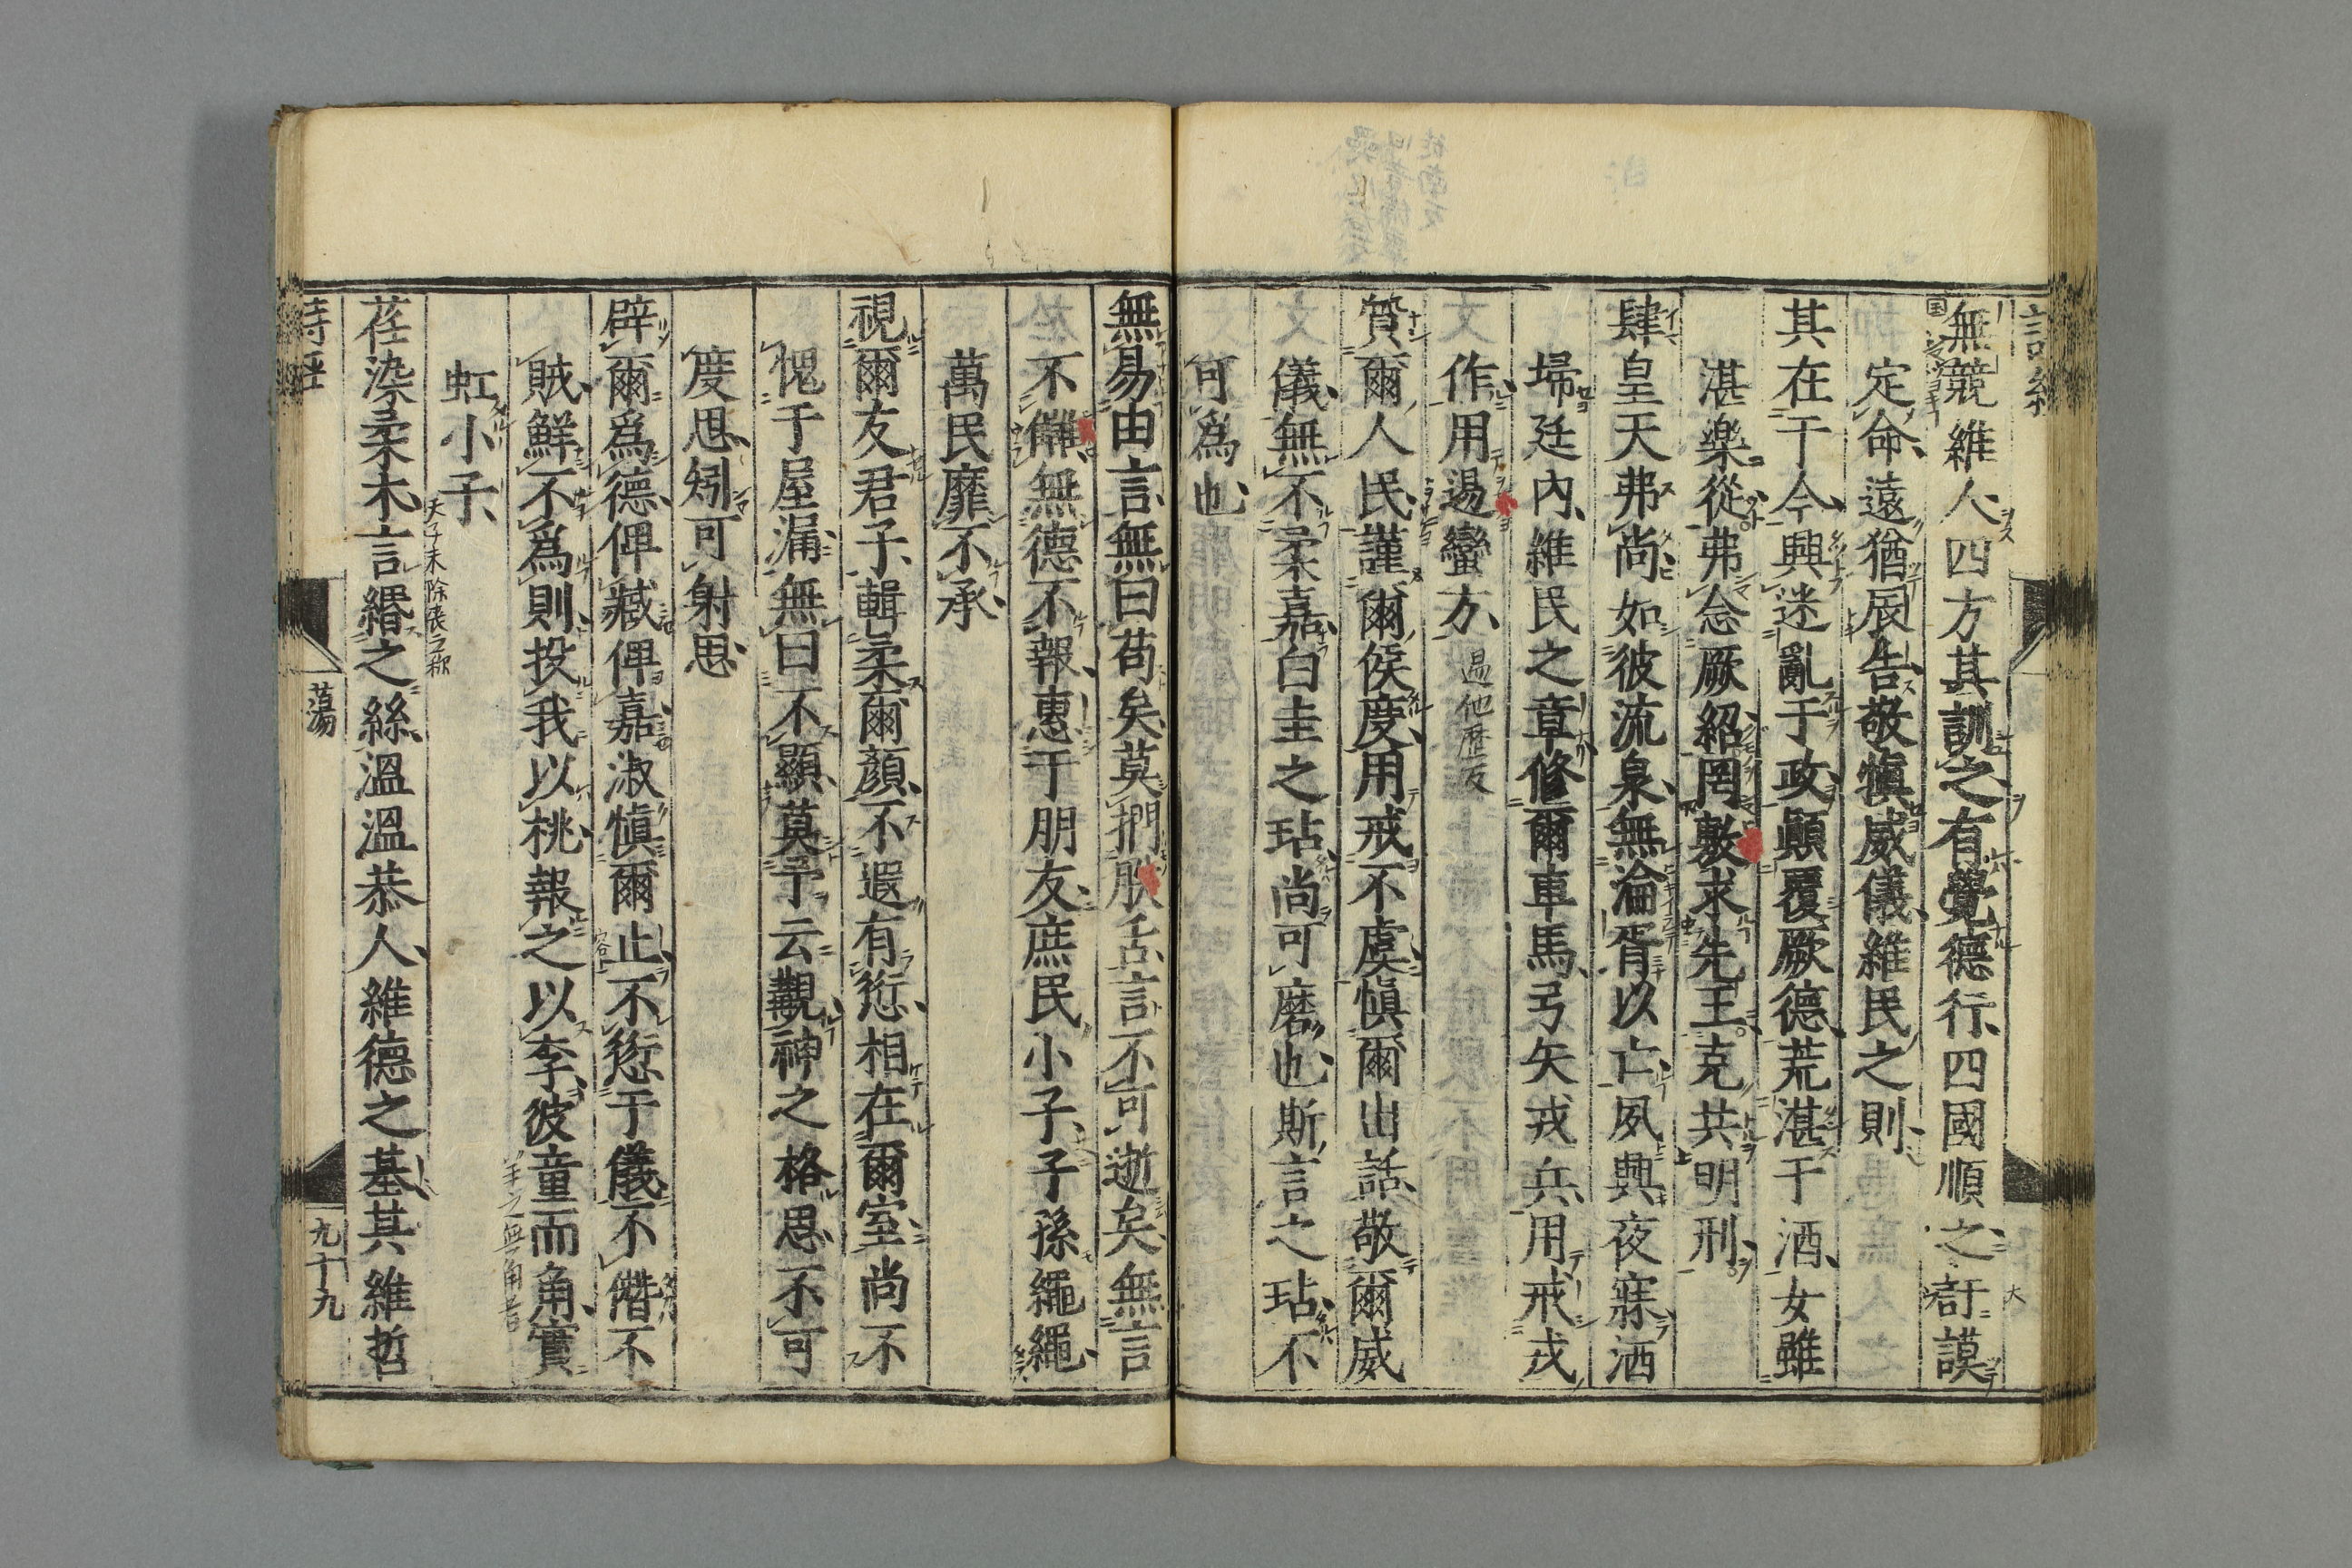 無競維人四方其訓之有覺德行四國順之訏謨
定命遠猶辰告敬愼威儀維民之則
其在于今興迷亂于政顚覆厥德荒湛于酒女雖
湛樂從弗念厥紹罔敷求先王克共明刑
肆皇天弗尚如彼流泉無淪胥以亡夙興夜寐洒
埽廷內維民之章修爾車馬弓矢戎兵用戒戎
作用逷蠻方 逷他歴反
質爾人民謹爾侯度用戒不虞愼爾出話敬爾威
儀無不柔嘉白圭之玷尚可磨也斯言之玷不
可爲也
無易由言無曰苟矣莫捫朕舌言不可逝矣無言
不讎無德不報惠于朋友庶民小子子孫繩繩
萬民靡不承
視爾友君子輯柔爾顏不遐有愆相在爾室尚不
愧于屋漏無曰不顯莫予云覯神之格思不可
度思矧可射思
辟爾爲德俾臧俾嘉淑愼爾止不愆于儀不僭不
賊鮮不爲則投我以桃報之以李彼童而角實
虹小子
羊之無角者
天子未除喪之称
荏染柔木言緡之絲溫溫恭人維德之基其維哲
詩經
蕩
九十九